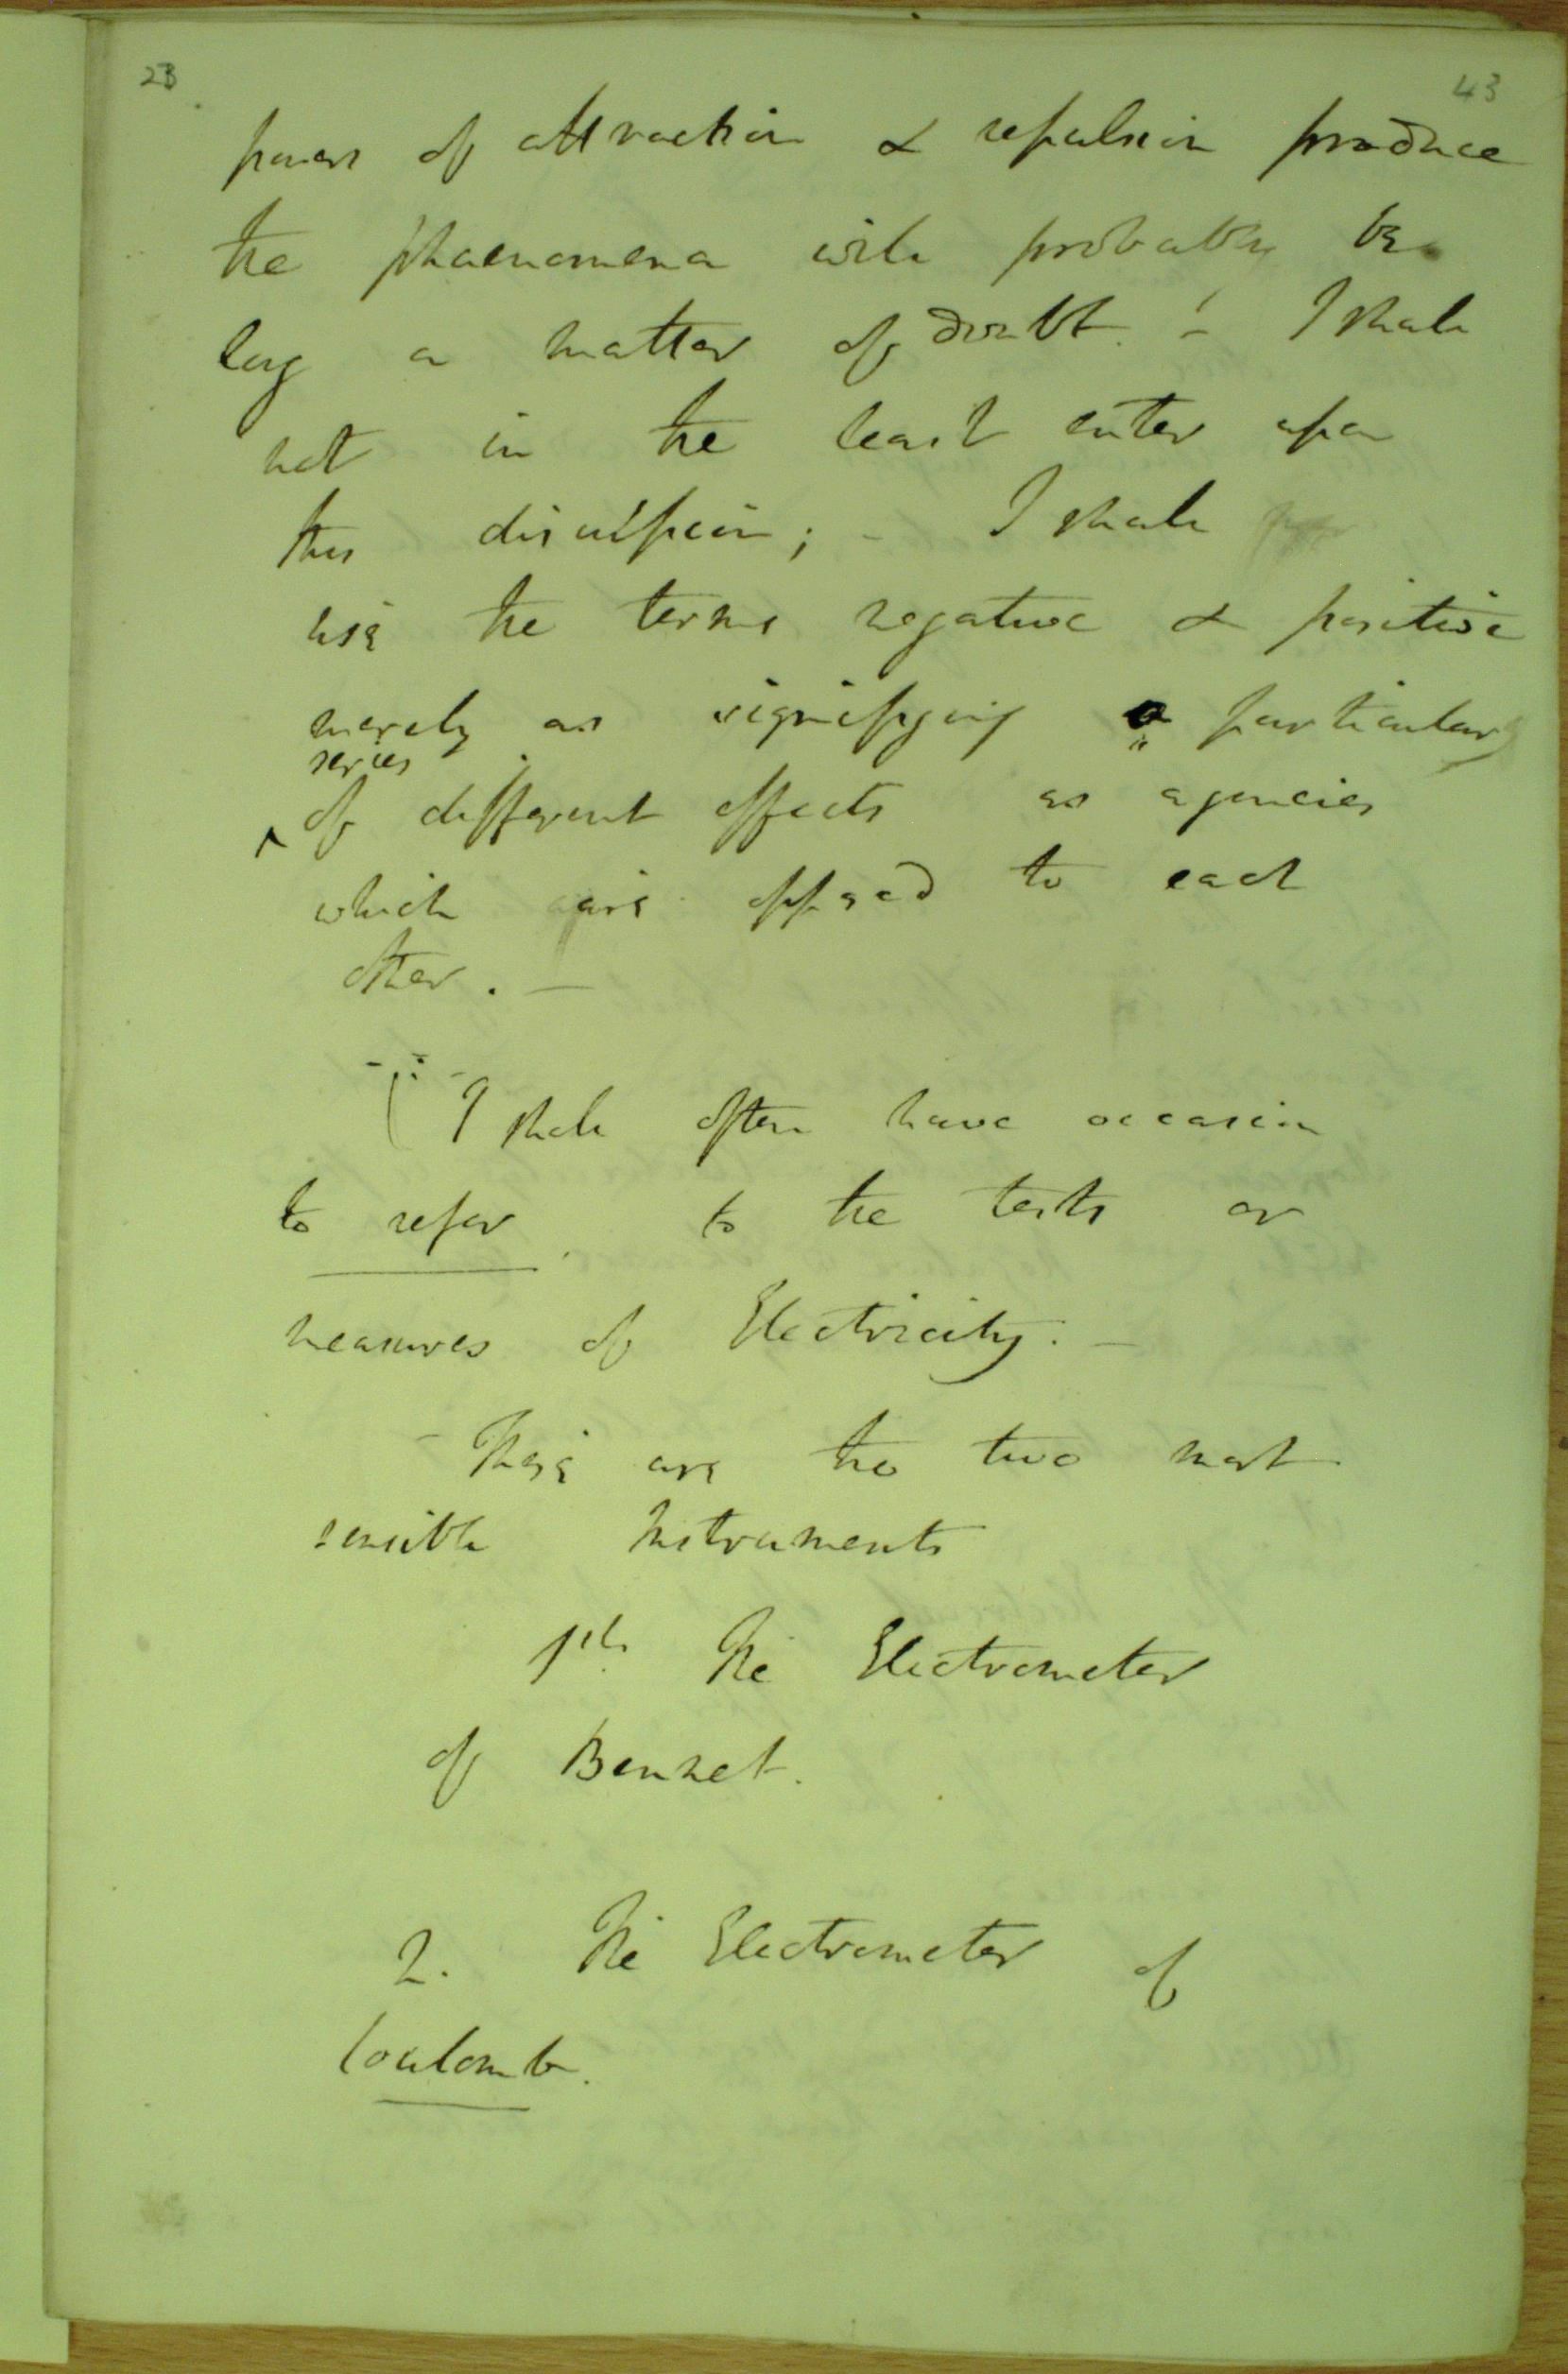 23 43
powers of attraction & repulsion produce
the phaenomena will probably be
long a matter of doubt. ! – I shall
not in the least enter upon
this discussion; – I shall
use the terms negative & positive
merely as signifying a particular
series
^ of different effects as agencies
which are opposed to each
other. —
I shall often have occasion
to refer to the tests or
measures of Electricity. –
– These are the two most
sensible Instruments
1st. The Electrometer
of Bennet.
2. The Electrometer of
Coulomb.